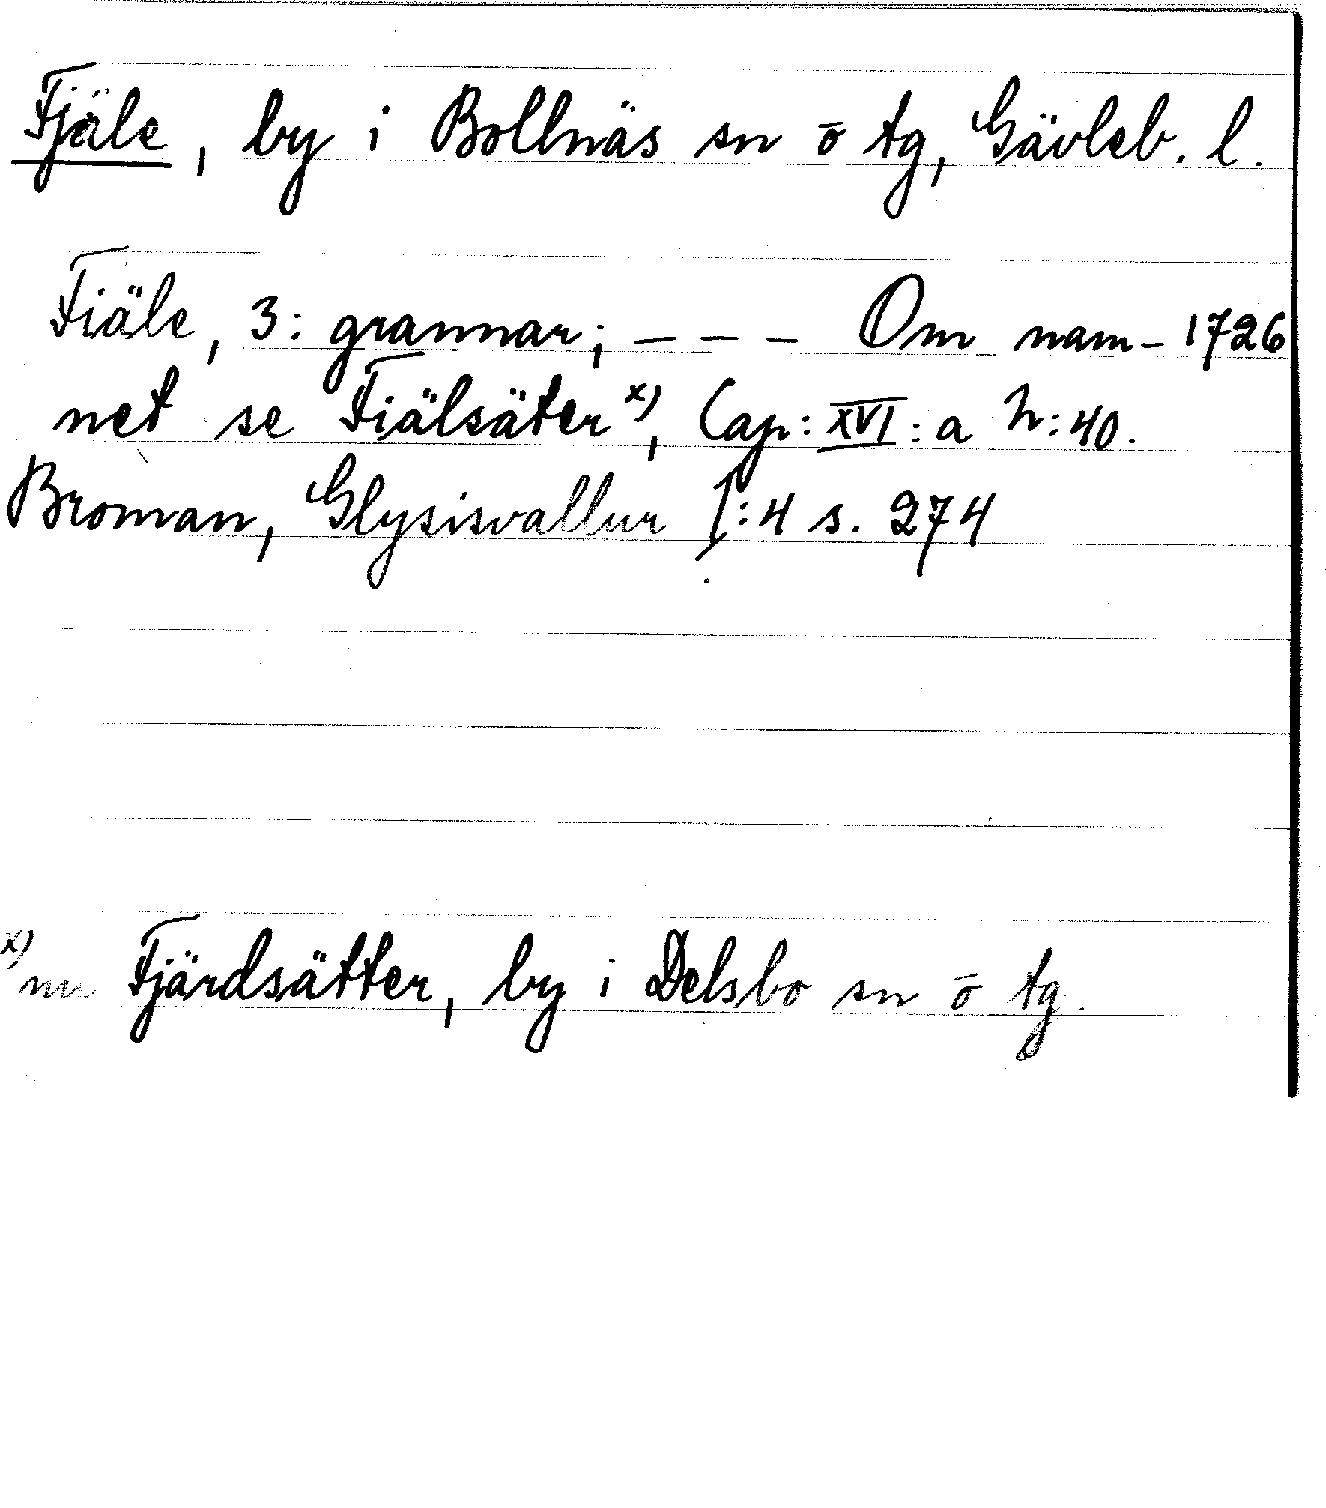 Fjäle, by i Bollnäs sn ō tg, Gävleb. l.
Fiäle, 3: grannar; – – – Om nam- 1726
net se Fiälsäter x), Cap: XVI: a N: 40.
Broman, Glysisvallur I:4 s. 274
x) nu Fjärdsätter, by i Delsbo sn ō tg.